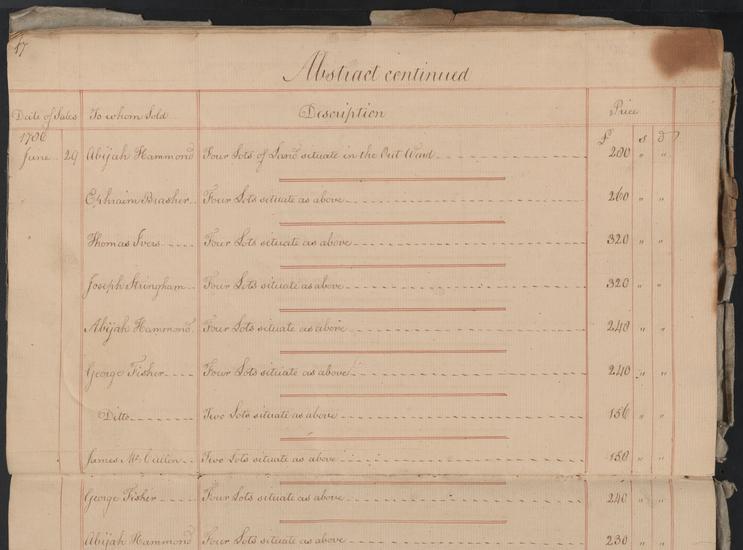 17
Abstract continued
Date of Sales To whom Sold Description Price
1786 £ s d
June 29 Abijah Hammond Four Lots of Land situate in the Out Ward 200 " "
Ephraim Brasher Four Lots situate as above 260 " "
Thomas Ivers Four Lots situate as above 320 " "
Joseph Stringham Four Lots situate as above 320 " "
Abijah Hammond Four Lots situate as above 240 " "
George Fisher Four Lots situate as above 240 " "
Ditto Two Lots situate as above 156 " "
James Mc. Cullen Two Lots situate as above 150 " "
George Fisher Four Lots situate as above 240 " "
Abijah Hammond Four Lots situate as above 230 " "